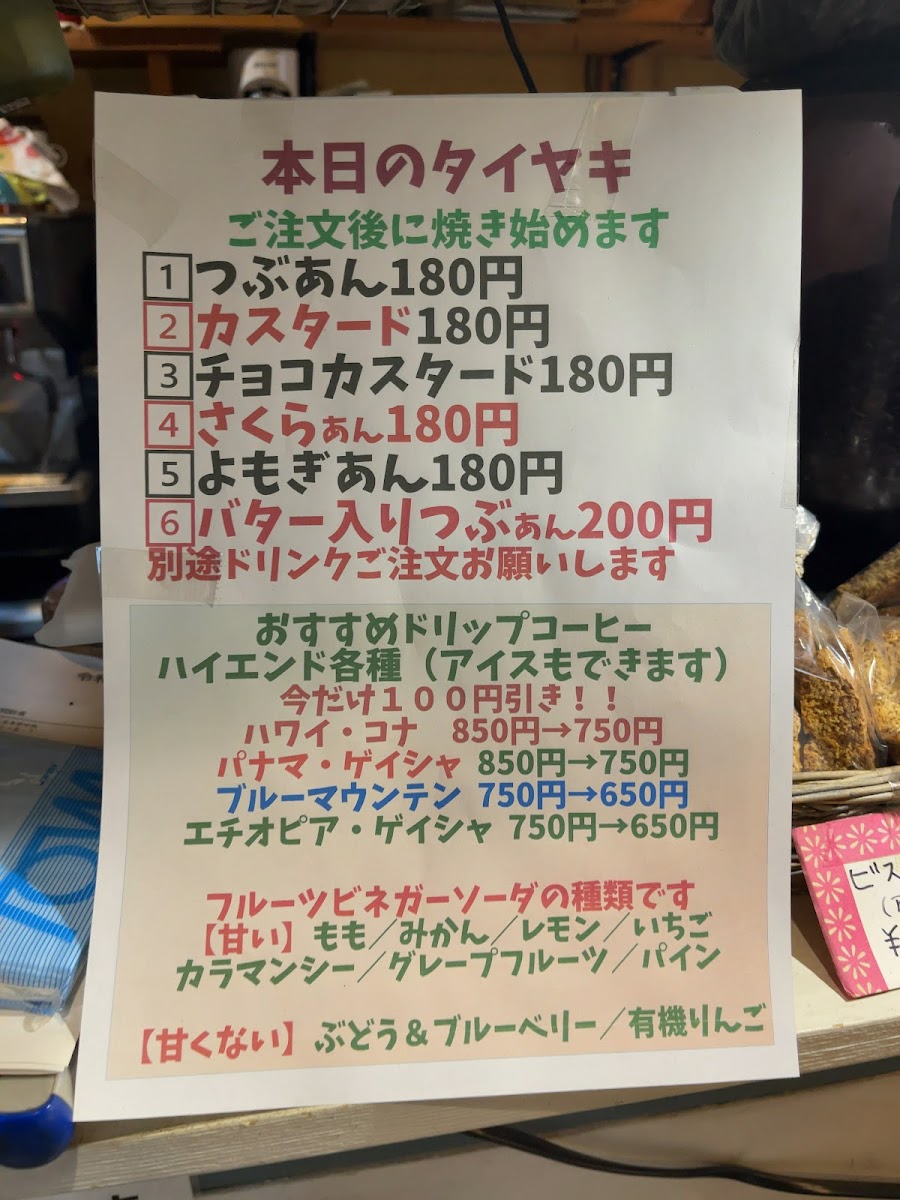 本日のタイヤキ
ご注文後に焼き始めます
1 つぶあん180円
2 カスタード180円
3 チョコカスタード180円
4 さくらあん180円
5 よもぎあん180円
6 バター入りつぶあん200円
別途ドリンクご注文お願いします
おすすめドリップコーヒー
ハイエンド各種（アイスもできます）
今だけ１００円引き！！
ハワイ・コナ 850円→750円
パナマ・ゲイシャ 850円→750円
ブルーマウンテン 750円→650円
エチオピア・ゲイシャ 750円→650円
フルーツビネガーソーダの種類です
【甘い】もも／みかん／レモン／いちご
カラマンシー／グレープフルーツ／パイン
【甘くない】ぶどう＆ブルーベリー／有機りんご
ビス
¥